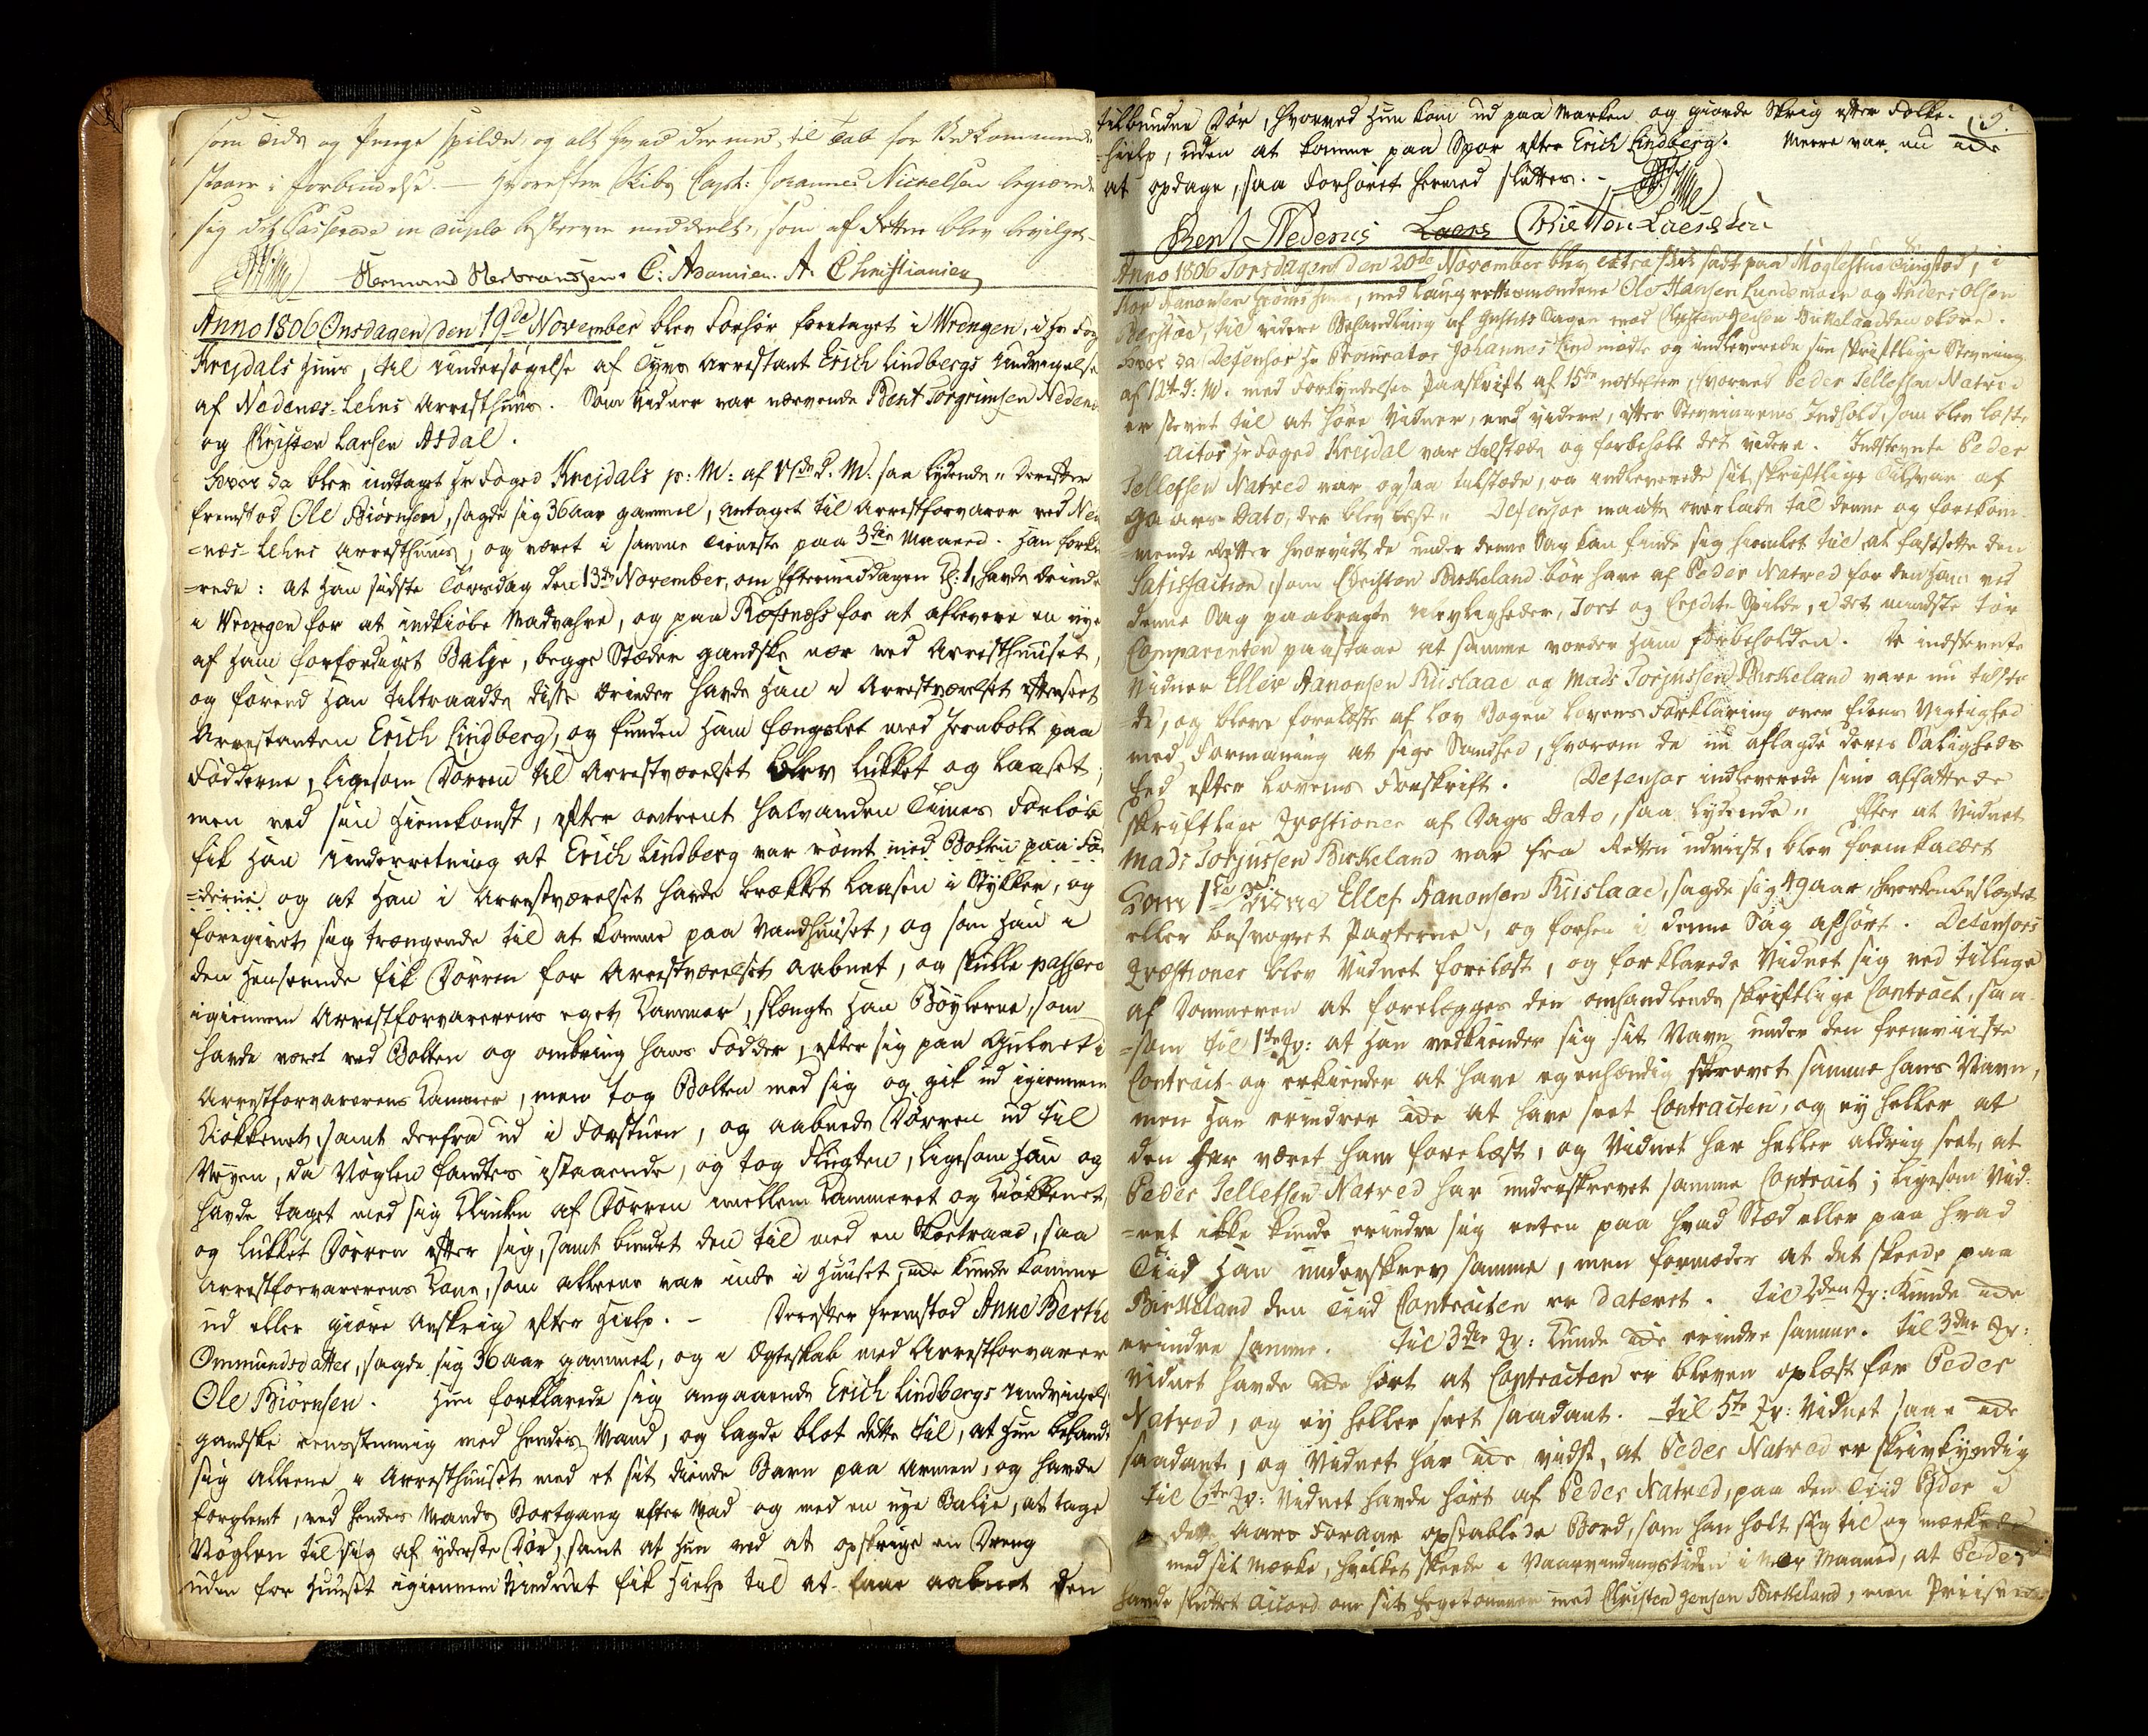 som Tids og Penge Spilde, og alt hvad dermed til Tab for Vedkommende
staaer i Forbindelse. — Hvorefter Skibs Capt: Johannes Nickelsen begierede
sig det Passerede in duplo beskreven meddeelt, som af Retten blev bevilget.
Hermand Herbrandsen. C: Adamsen. A. Christiansen
Anno 1806 Onsdagen den 19de November blev Forhør foretaget i Wrengen, i Hr Fog
Krejdals Huus, til Undersøgelse af Tyvs Arrestant Erich Lindbergs Undvigelse
af Nedenes-Lehns Arresthuus. Som Vidner var nærværende Bent Torgrimsen Nedenes
og Christen Larsen Asdal.
Hvor da blev indtaget Hr Foged Krejdals p: M: af 17de d. M. saa lydende " Derefter
fremstod Ole Biørnsen, sagde sig 36 Aar gammel, antaget til Arrestforvarer ved Nede
=næs-Lehns Arresthuus, og været i samme Tieneste paa 3die Maaned. Han forkla
=rede: at han sidste Torsdag den 13de November, om Eftermiddagen Kl: 1, havde Ærinde
i Wrengen for at indkiøbe Madvahre, og paa Rosnæss for at aflevere en nye
af ham forfærdiget Balje, begge Stæder gandske nær ved Arresthuuset,
og førend han tiltraadde disse Ærinder havde han i Arrestværelset efterseet
Arrestanten Erich Lindberg, og funden ham fængslet med Jernbolt paa
Fødderne, ligesom Dørren til Arrestværelset blev lukket og laaset;
men ved sin Hiemkomst, efter omtrent halvanden Times Forløb
fik han Underretning at Erich Lindberg var rømt med Bolten paa Fø
=derne og at han i Arrestværelset havde brækket Laasen i Stykker, og
foregivet sig trængende til at komme paa Vandhuuset, og som han i
den Henseende fik Dørren for Arrestværelset aabnet, og skulle passere
igiennem Arrestforvarerens eget Kammer, slængte han Bøylerne, som
havde været ved Bolten og omkring hans Fødder, efter sig paa Gulvet i
Arrestforvarerens Kammer, men tog Bolten med sig og gik ud igiennem
Kiøkkenet, samt derfra ud i Forstuen, og aabnede Dørren ud til
Veyen, da Nøglen fandtes istaaende, og tog Flugten, ligesom han og
havde taget med sig Klinken af Dørren imellem Kammeret og Kiøkkenet,
og lukket Dørren efter sig, samt bundet den til med en Skoetraad, saa
Arrestforvarerens Kone, som alleene var inde i Huuset, icke kunde komme
ud eller giøre Anskrig efter Hielp. — Derefter fremstod Anne Berthe
Ommundsdatter, sagde sig 36 Aar gammel, og i Ægteskab med Arrestforvarer
Ole Biørnsen. Hun forklarede sig angaaende Erich Lindbergs Undvigelse
gandske eensstemmig med hendes Mand, og lagde blot dette til, at hun befandt
sig alleene i Arresthuuset med et sit diende Barn paa Armen, og havde
forglemt, ved hendes Mands Bortgang efter Mad og med en nye Balje, at tage
Nøglen til sig af yderste Dør, samt at hun ved at opskrige en Dreng
uden for Huuset igiennem Vinduet fik Hielp til at faae aabnet den
tilbundne Dør, hvorved hun kom ud paa Marken og giorde Skrig efter Folke-
=hielp, uden at komme paa Spor efter Erich Lindberg. Meere var nu icke
at opdage, saa Forhøret hermed sluttes. —
Bent Nedenes Christen Laersen
Anno 1806 Torsdagen den 20de November blev extra Ret sadt paa Møglestue Tingsted, i
Aanonsen Huus, med Laugrettesmændene Ole Hansen Lundemoen og Anders Olsen
Berstad, til videre Behandling af Justits Sagen mod Christen Jensen Birkeland den store.
Hvor da Defensor Hr Procurator Johannes Lind mødte og indleverede sin skriftlige Stevning
af 12te d: M: med Forkyndelses Paaskrift af 15de næstefter, hvorved Peder Tellefsen Natved
er stevnt til at høre Vidner, med videre, efter Stevningens Indhold, som blev læste
Actor Hr Foged Krejdal var tilstæde og forbeholdt det videre. Indstevnte Peder
Tellefsen Natved var ogsaa tilstæde, og indleverede sit skriftlige Tilsvar af
Gaars Dato, der blev læst " Defensor maatte overlade til denne og forekom-
mende Retter hvorvidt de under denne Sag kan finde sig hiemlet til at fastsette den
Satisfaction, som Christen Birkeland bør have af Peder Natved for den ham ved
denne Sag paabragte Uleyligheder, Tort og Credits Spilde, i det mindste tør
Comparenten paastaae at samme vorder ham forbeholden. De indstevnte
Vidner Ellev Aanonsen Riislaae og Mads Torjussen Birkeland vare nu tilstæ
de, og bleve forelæste af Lov Bogen Lovens Forklaring over Edens Vigtighed
med Formaning at sige Sandhed, hvorom de nu aflagde deres Saligheds
Eed efter Lovens Forskrift. Defensor indleverede sine affattede
skriftlige Qvæstioner af Dags Dato, saa lydende " Efter at Vidnet
Mads Torjussen Birkeland var fra Retten udviist, blev fremkaldet
Som 1ste Vidne Ellef Aanonsen Riislaae, sagde sig 49 Aar, hverken beslægtet
eller besvogret Parterne, og forhen i denne Sag afhørt. Defensors
Qvæstioner blev Vidnet forelæst, og forklarede Vidnet sig ved tillige
af Dommeren at forelægges den omhandlende skriftlige Contract, saa-
=som til 1ste Qv: at han vedkiender sig sit Navn under den fremviiste
Contract og erkiender at have egenhændig skrevet samme hans Navn,
men han erindrer icke at have seet Contracten, og ey heller at
den har været ham forelæst, og Vidnet har heller aldrig seet, at
Peder Tellefsen Natved har underskrevet samme Contract; ligesom Vid-
=net ikke kunde erindre sig enten paa hvad Stæd eller paa hvad
Tiid han underskrev samme, men formoder at det skeede paa
Birkeland den Tiid Contracten er dateret. Til 2den Qv: Kunde icke
erindre samme. Til 3die Qv: Kunde icke erindre samme. Til 3die Qv:
Vidnet havde icke hørt at Contracten er bleven oplæst for Peder
Natved, og ey heller seet saadant. Til 5te Qv: Vidnet saae icke
saadant, og Vidnet har icke vidst, at Peder Natved er skrivkyndig
Til 6te Qv: Vidnet havde hørt af Peder Natved, paa den Tiid Peder i
dette Aars Foraar opstablede Bord, som han holt sig til og mærkede
med sit Mærke, hvilket skeede i Vaarvindingstiden i May Maaned, at Peder
havde sluttet Accord om sit Egetømmer med Christen Jensen Birkeland, men Priisen